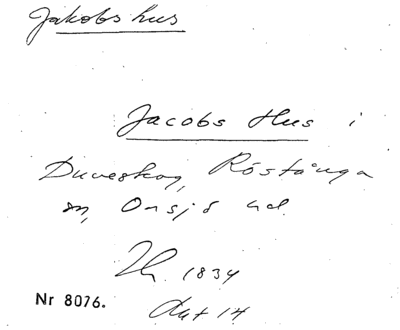 Jakobs hus
Jacobs Hus i
Duveskog, Röstånga
sn, Onsjö hd.
Th. 1834
Nr 8076.